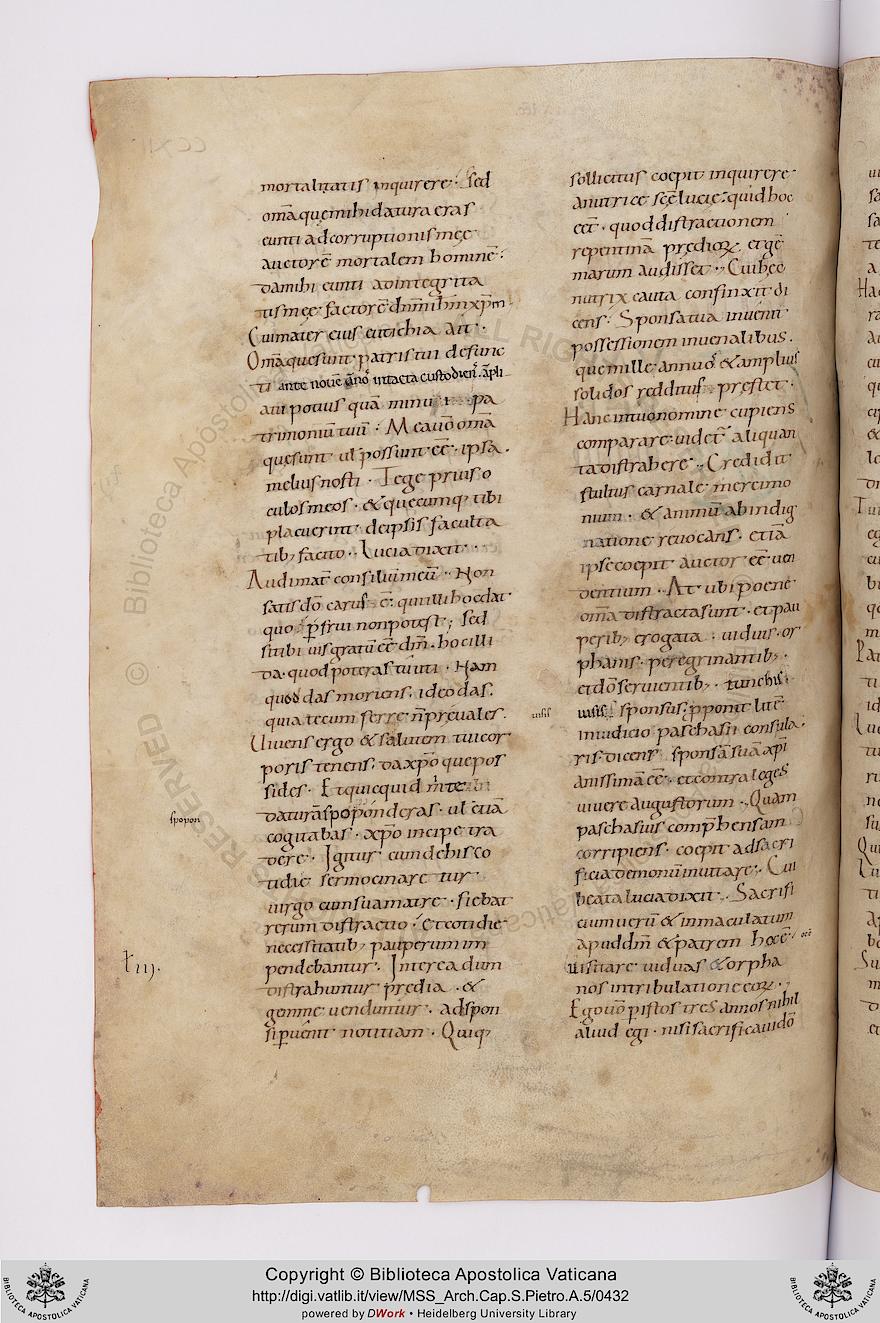 mortalitatis inquirere · Sed
om̄a quę mihi datura eras
eunti ad corruptionis meę
auctorē mortalem hominē ·
da mihi eunti ad integrita
tis meę factorē dn̄m ihm̄ xp̄m
Cui mater eius eutichia ait ·
Om̄a quę sunt patris tui defunc
ti ante nouē annos intacta custodien
aui potius quā minui pa
trimoniū tuū · Mea uō om̄a
quę sunt ul possunt eē · ipsa
melius nosti · Tege prius o
culos meos · & quęcumq; tibi
placuerint de ipsis faculta
tib; facito · Lucia dixit ·
Audi mat̄ consiliū meū · Non
satis dō carus ē qui illi hoc dat
quo ipse frui non potest; Sed
si tibi uis gratū eē dm̄ · hoc illi
da · quod poteras tu uti · Nam
quod das moriens · ideo das ·
quia tecum ferre n̄ pręuales ·
Uiuens ergo & salutem tui cor
poris tenens · da xp̄o quę pos
sides · Et quicquid
daturā spoponderas · ul etiā
cogitabas · xp̄o incipe tra
dere · Igitur cum de his co
tidie sermocinaretur
uirgo cum sua matre · fiebat
rerum distractio · Et cotidie
necessitatib; pauperum im
pendebantur · Interea dum
distrahuntur prędia · &
gemmę uenduntur · ad spon
si puenit notitiam · Quiq;
spopon
sollicitus coepit inquirere
a nutrice sc̄ę lucię · quid hoc
eēt · quod distractionem
repentinā prędioꝝ et gē
marum audisset · Cui hęc
nutrix cauta confinxit di
cens · Sponsa tua inuenit
possessionem in uenalibus ·
quę mille annuos & amplius
solidos redditus prestet ·
Hanc in tuo nomine cupiens
comparare uidet aliquan
ta distrahere · Credidit
stultus carnale mercimo
nium · & animū ab indig
natione reuocans · etiā
ipse coepit auctor eē uen
dentium · At ubi poene
om̄a distracta sunt · et pau
perib; erogata · uiduis · or
phanis · peregrinantib; ·
et dō seruientib; · tunc his
uisis sponsus pponit litē
in iudicio paschasii consula
ris dicens · sponsā suā xp̄i
anissimā eē · et contra leges
uiuere augustorum · Quam
paschasius comphensam
corripiens · coepit ad sacri
ficia demonū inuitare · Cui
beata lucia dixit · Sacrifi
cium uerū & inmaculatum
apud dm̄ & patrem hoc ē
uisitare uiduas & orpha
nos in tribulatione eoꝝ ·
Ego uō p istos tres annos nihil
aliud egi · nisi sacrificaui dō
uisis
Copyright © Biblioteca Apostolica Vaticana
http://digi.vatlib.it/view/MSS_Arch.Cap.S.Pietro.A.5/0432
powered by DWork • Heidelberg University Library